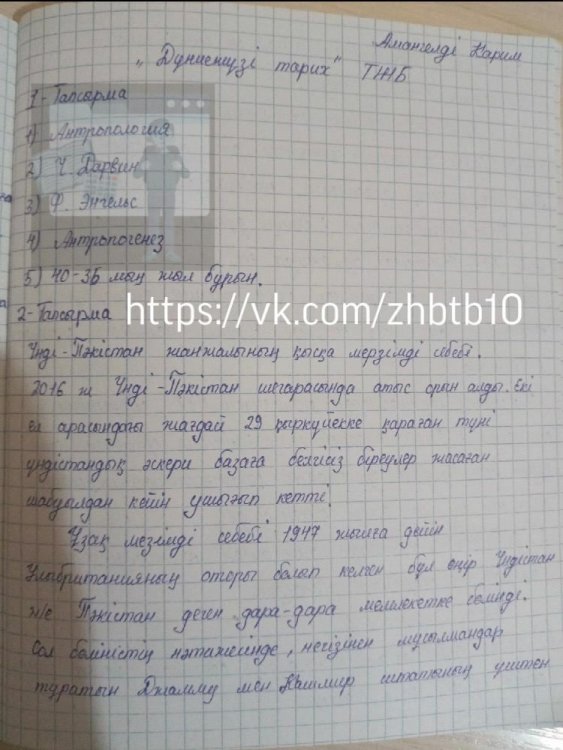 Амангелді Карим
"Дүниежүзі тарих" ТЖБ
1-Тапсырма
1) Антропология
2) Ч. Дарвин
3) Ф. Энгельс
4) Антропогенез
5) 40-35 мың жыл бұрын.
https://vk.com/zhbtb10
2-Тапсырма
Үнді-Пәкістан жанжалының қысқа мерзімді себебі.
2016 ж Үнді-Пәкістан шегарасында атыс орын алды. Екі
ел арасындағы жағдай 29 қыркүйекке қараған түні
үндістандық әскери базаға белгісіз біреулер жасаған
шабуылдан кейін ушығып кетті.
Ұзақ мезімді себебі 1947 жылға дейін
Ұлыбританияның отары болып келген бұл өңір Үндістан
ж/е Пәкістан деген дара-дара мемлекетке бөлінді.
Сол бөліністің нәтижесінде, негізінен мұсылмандар
тұратын Джамму мен Кашмир штатының үштен